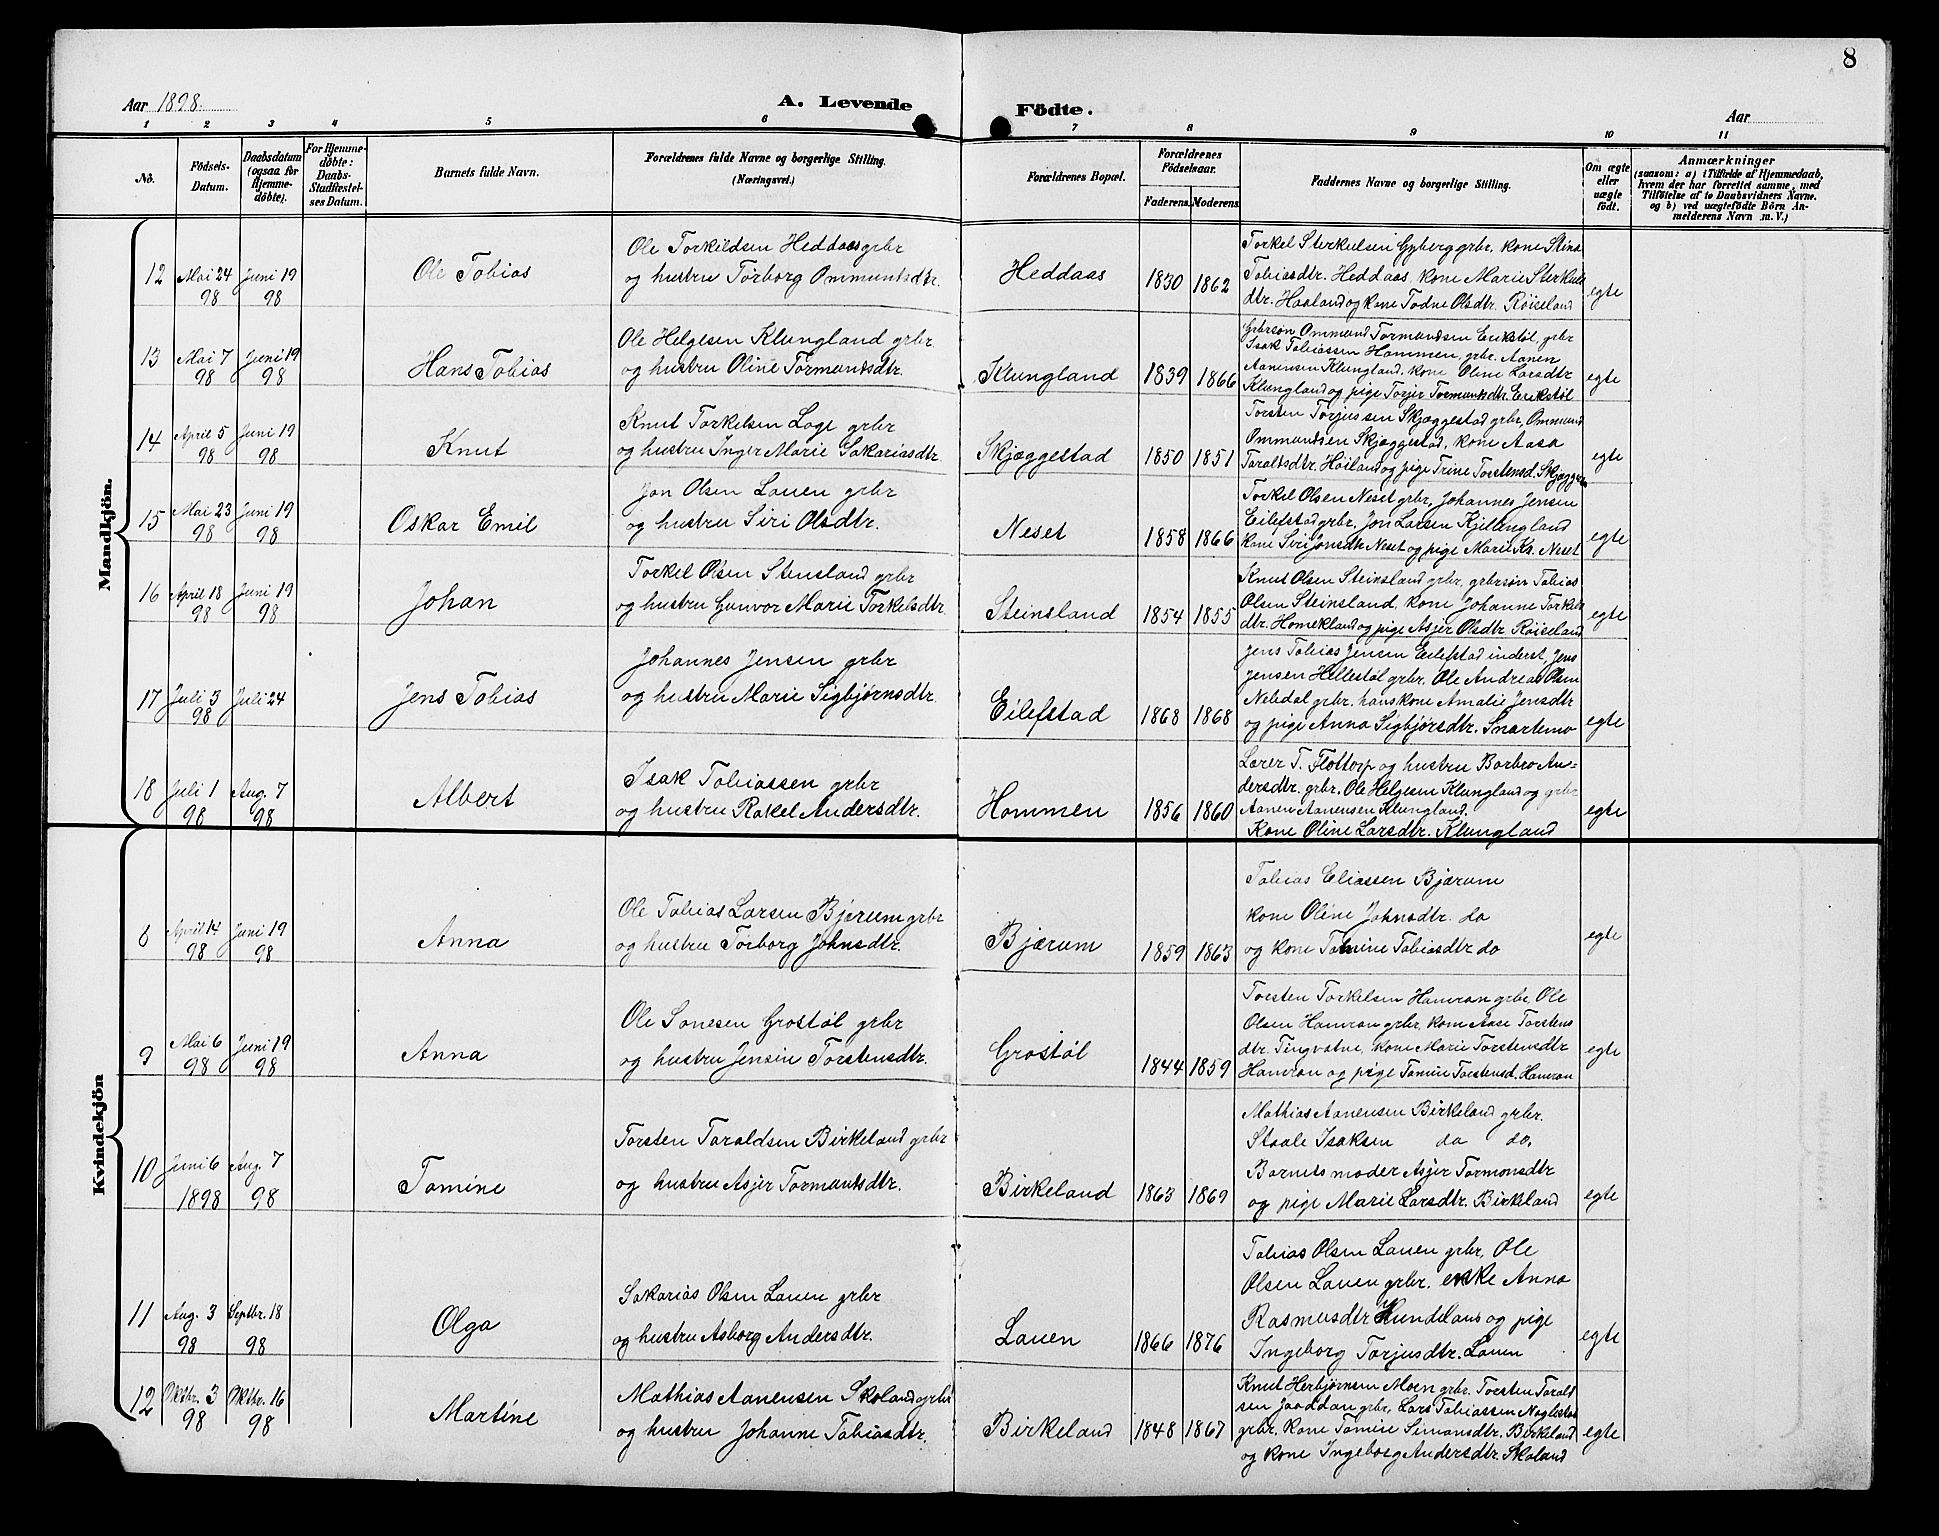 8
Aar 1898.
A. Levende
Födte.
Aar
1 2 3 4 5 6 7 8 9 10 11
No.
Födsels-Datum.
Daabsdatum (ogsaa for Hjemmedöbte).
For Hjemmedöbte: Daabs-Stadfæstelses Datum.
Barnets fulde Navn.
Forældrenes fulde Navne og borgerlige Stilling.
(Næringsvei.)
Forældrenes Bopæl.
Forældrenes Födselsaar.
Faderens. Moderens.
Faddernes Navne og borgerlige Stilling.
Om ægte eller uægte födt.
Anmærkninger
(saasom: a) i Tilfælde af Hjemmedaab,
hvem der har forrettet samme, med
Tilföielse af to Daabsvidners Navne.
og b) ved uægtefödte Börn An-
melderens Navn m. V.)
Mandkjön.
12 Mai 24 98 Juni 19 98 Ole Tobias
Ole Torkildsen Heddaas grbr
og hustru Torborg Ommundsdtr.
Heddaas 1830 1862
Torkel Sterkelsen Gyberg grbr. kone Stina
Tobiasdtr. Heddaas, kone Marie Sterkels
dtr. Haaland og kone Todne Olsdtr. Røiseland
egte
13 Mai 7 98 Juni 19 98 Hans Tobias
Ole Helgesen Klungland grbr
og hustru Oline Tormundsdtr.
Klungland 1839 1866
Grbrsøn Ommund Tormundsen Erikstøl, grbr
Isak Tobiassen Hommen, grbr. Aanen
Aanensen Klungland, kone Oline Larsdtr
Klungland og pige Torjer Tormundsdtr Erikstøl
egte
14 April 5 98 Juni 19 98 Knut
Knut Torkelsen Loge grbr
og hustru Inger Marie Sakariasdtr
Skjæggestad 1850 1851
Torsten Torjussen Skjæggestad grbr, Ommund
Ommundsen Skjæggestad, kone Aasa
Taraldsdtr. Høiland og pige Trine Torstensd. Skjægges
egte
15 Mai 23 98 Juni 19 98 Oskar Emil
Jon Olsen Lauen grbr
og hustru Siri Olsdtr.
Neset 1858 1866
Torkel Olsen Neset grbr, Johannes Jensen
Eilefstad grbr. Jon Larsen Kjellingland
kone Siri Jonsdtr Neset og pige Marie Kr. Neset
egte
16 April 18 98 Juni 19 98 Johan
Torkel Olsen Stensland grbr
og hustru Gunvor Marie Torkelsdtr.
Steinsland 1854 1855
Knut Olsen Steinsland grbr, grbrsøn Tobias
Olsen Steinsland, kone Johanne Torkels
dtr. Homekland og pige Asjer Olsdtr Røiseland
egte
17 Juli 3 98 Juli 24 Jens Tobias
Johannes Jensen grbr
og hustru Marie Sigbjørnsdtr.
Eilefstad 1868 1868
Jens Tobias Jensen Eilefstad inderst, Jens
Jensen Hellestøl grbr, Ole Andreas Olsen
Nebdal grbr. hans kone Amalie Jensdtr
og pige Anna Sigbjørsdtr. Snartemo
egte
18 Juli 1 98 Aug. 7 98 Albert
Isak Tobiassen grbr
og hustru Rakel Andersdtr.
Hommen 1856 1860
Lärer T. Flottorp og hustru Barbro An-
dersdtr. grbr. Ole Helgesen Klungland og grbr
Aanen Aanensen Klungland.
Kone Oline Larsdtr. Klungland
egte
Kvindekjön
8 April 14 98 Juni 19 98 Anna
Ole Tobias Larsen Bjærum grbr
og hustru Torborg Johnsdtr.
Bjærum 1859 1863
Tobias Eliassen Bjærum
kone Oline Johnsdtr. do
og kone Tomine Tobiasdtr do
egte
9 Mai 6 98 Juni 19 98 Anna
Ole Sonesen Grostøl grbr
og hustru Jensine Torstensdtr.
Grostøl 1844 1859
Torsten Torkelsen Hamran grbr, Ole
Olsen Hamran grbr, kone Aase Torstens
dtr. Tingvatne, kone Marie Torstensdtr
Hamran og pige Tomine Torstensd. Hamran
egte
10 Juni 6 1898 Aug. 7 98 Tomine
Torsten Taraldsen Birkeland grbr
og hustru Asjer Tormundsdtr.
Birkeland 1863 1869
Mathias Aanensen Birkeland grbr.
Staale Isaksen do do.
Barnets moder Asjer Tormonsdtr
og pige Marie Larsdtr. Birkeland
egte
11 Aug. 3 98 Septbr. 18 98 Olga
Sakarias Olsen Lauen grbr
og hustru Asborg Andersdtr.
Lauen 1866 1876
Tobias Olsen Lauen grbr, Ole
Olsen Lauen grbr. enke Anna
Rasmusdtr Hundeland og pige
Ingeborg Torjusdtr. Lauen
egte
12 Oktbr. 3 98 Oktbr. 16 98 Martine
Mathias Aanensen Skoland grbr
og hustru Johanne Tobiasdtr.
Birkeland 1848 1867
Knut Herbjørnsen Moen grbr. Torsten Tarald
sen Jaaddan grbr, Lars Tobiassen Naglestad
grbr. kone Tomine Simonsdtr. Birkeland
og kone Ingeborg Andersdtr. Skoland
egte